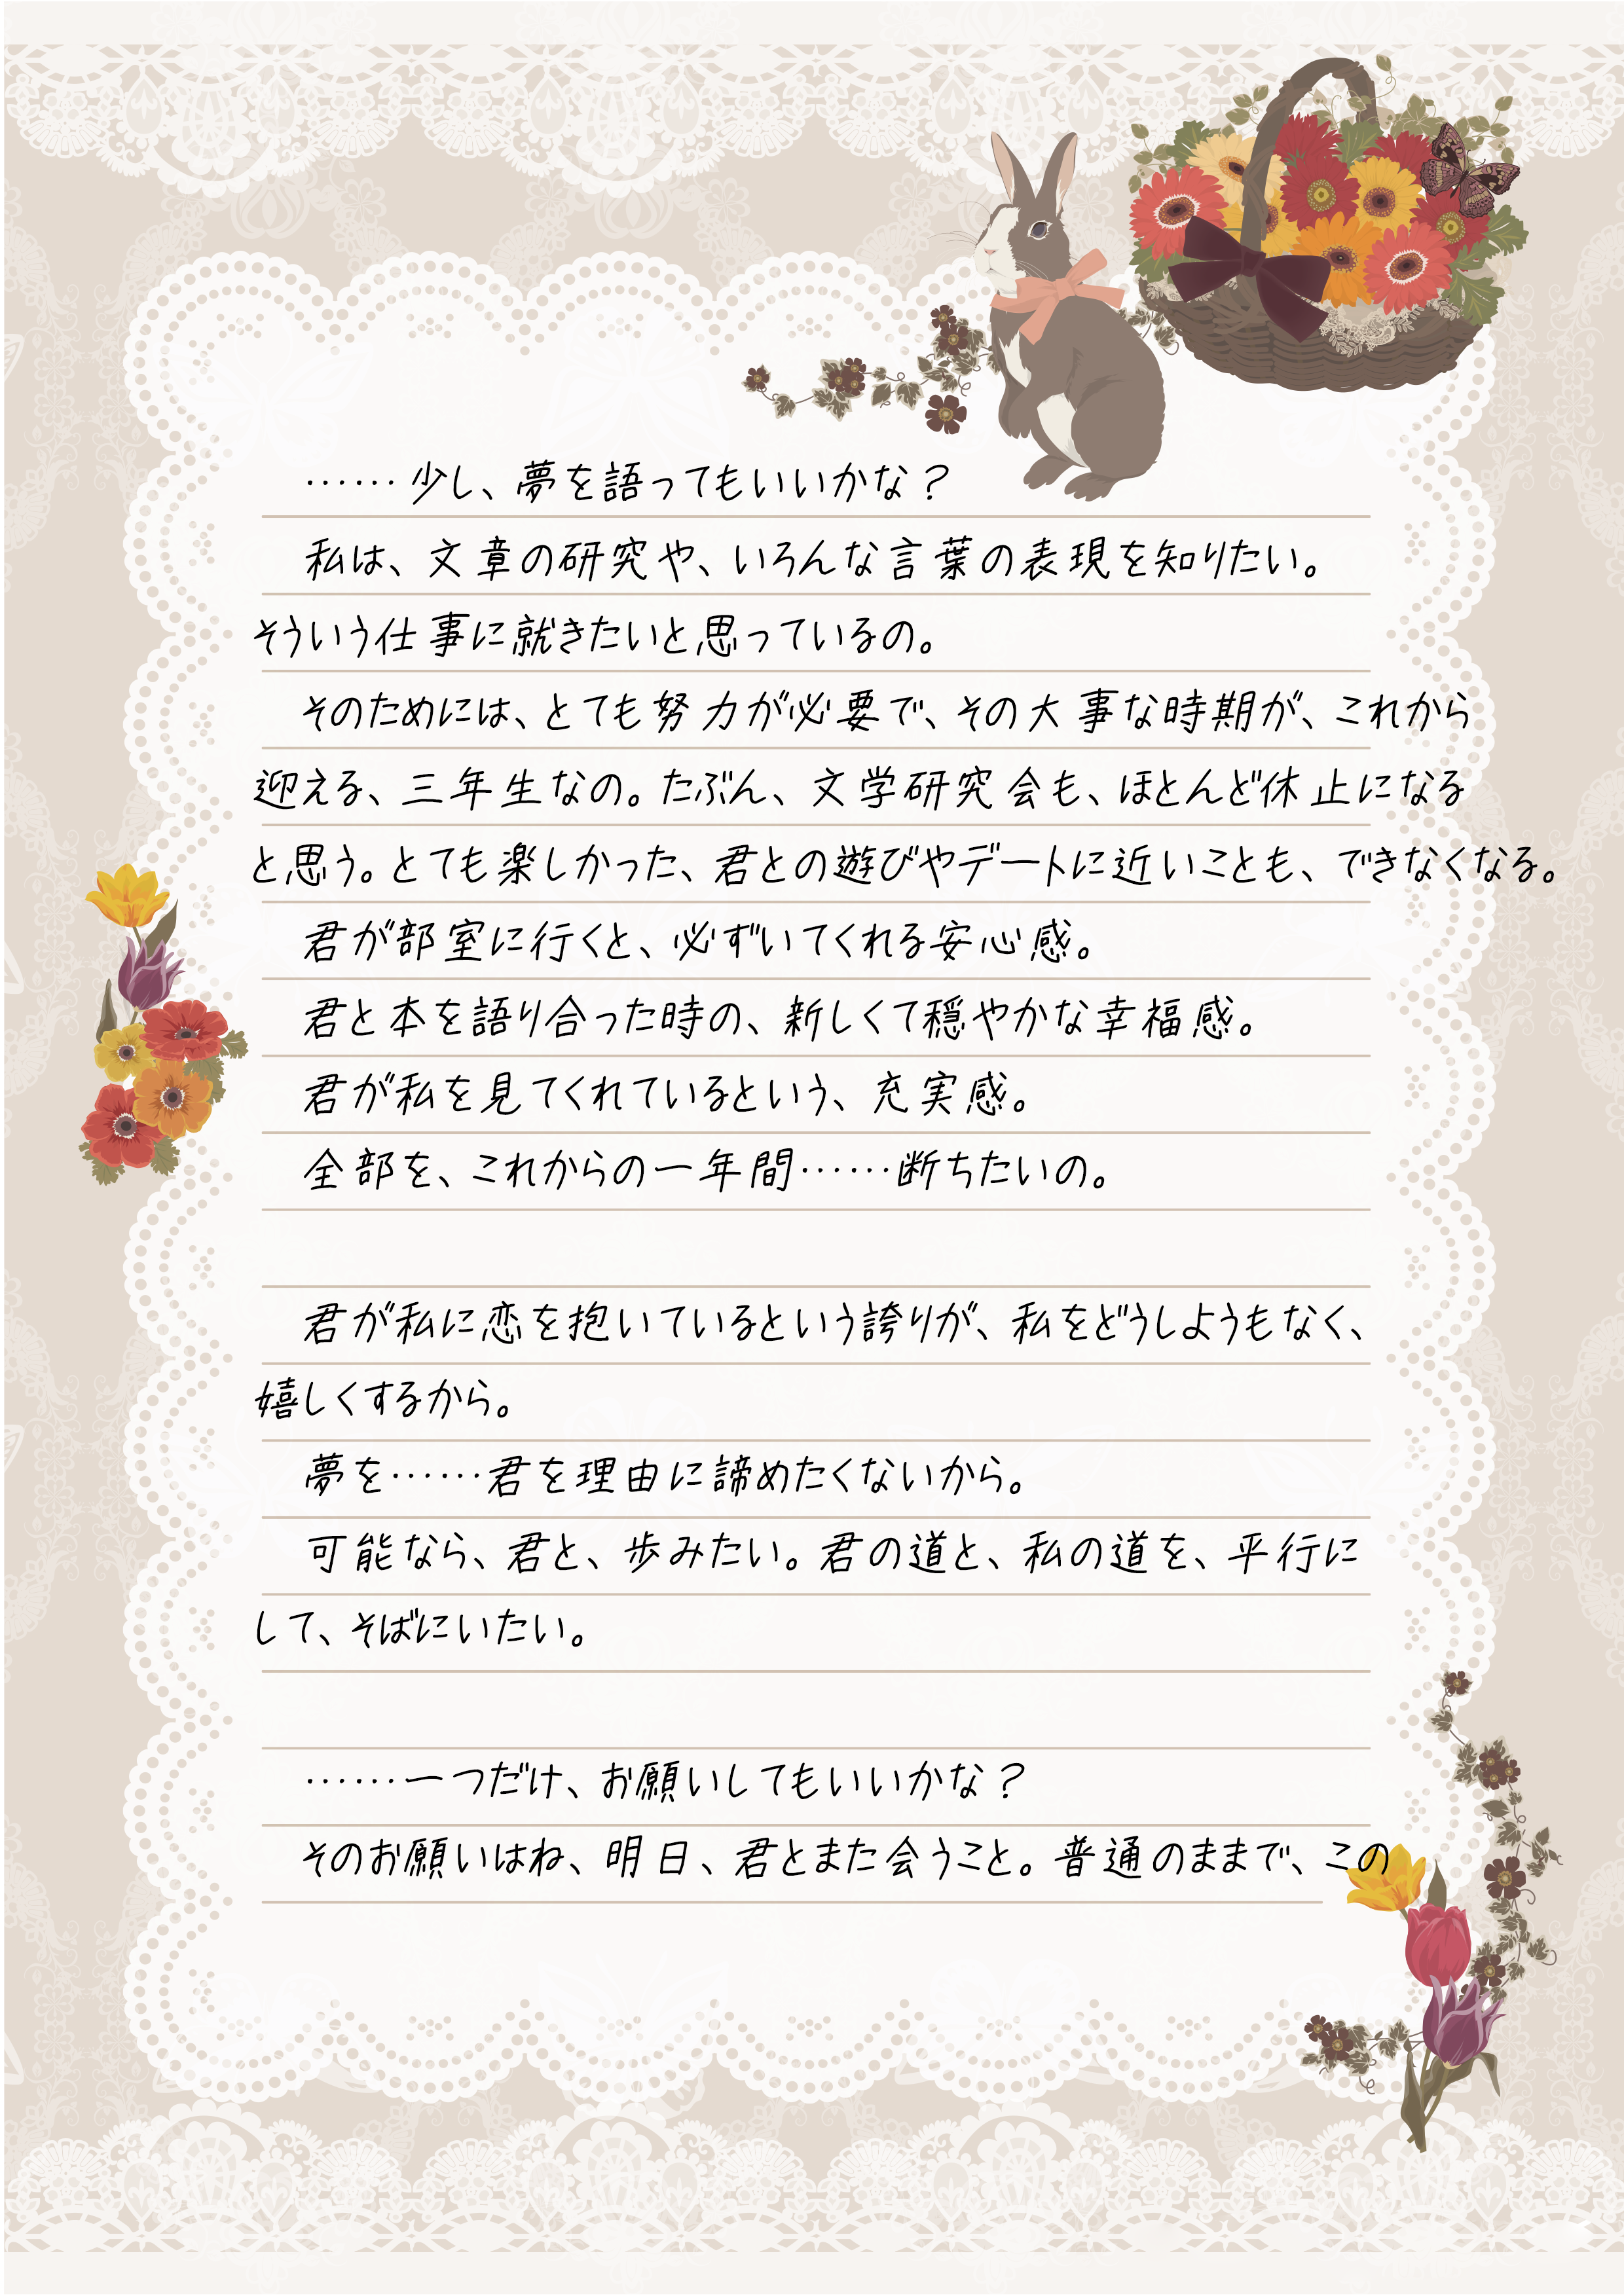 ……少し、夢を語ってもいいかな？
私は、文章の研究や、いろんな言葉の表現を知りたい。
そういう仕事に就きたいと思っているの。
そのためには、とても努力が必要で、その大事な時期が、これから
迎える、三年生なの。たぶん、文学研究会も、ほとんど休止になる
と思う。とても楽しかった、君との遊びやデートに近いことも、できなくなる。
君が部室に行くと、必ずいてくれる安心感。
君と本を語り合った時の、新しくて穏やかな幸福感。
君が私を見てくれているという、充実感。
全部を、これからの一年間……断ちたいの。
君が私に恋を抱いているという誇りが、私をどうしようもなく、
嬉しくするから。
夢を……君を理由に諦めたくないから。
可能なら、君と、歩みたい。君の道と、私の道を、平行に
して、そばにいたい。
……一つだけ、お願いしてもいいかな？
そのお願いはね、明日、君とまた会うこと。普通のままで、この